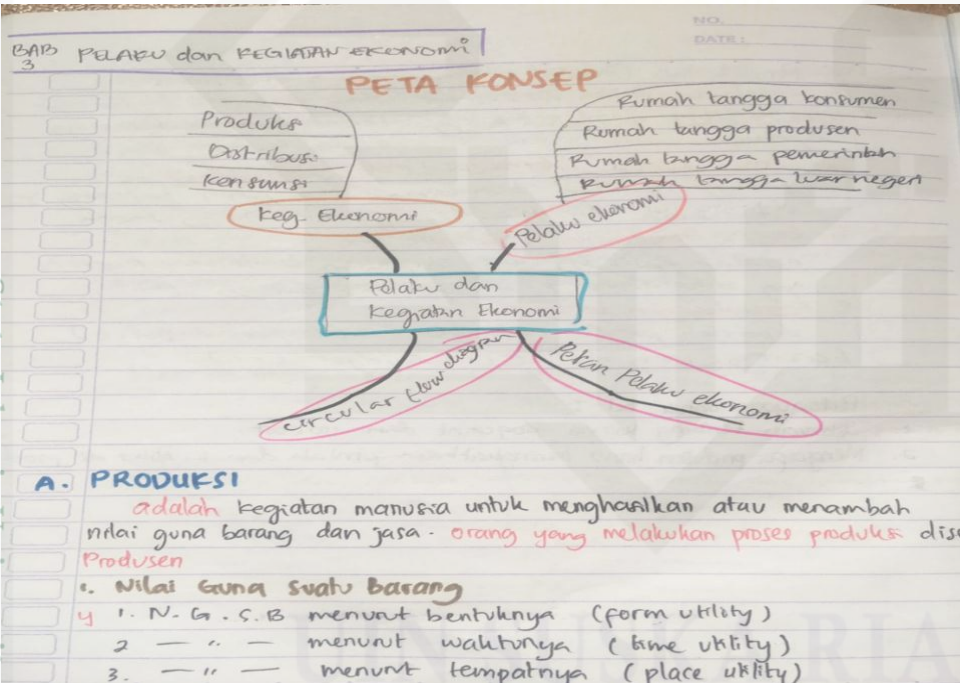 NO.
DATE :
BAB 3 PELAKU dan KEGIATAN EKONOMI
PETA KONSEP
Produksi
Distribusi
Konsumsi
Keg. Ekonomi
Rumah tangga konsumen
Rumah tangga produsen
Rumah tangga pemerintah
Rumah tangga luar negeri
Pelaku ekonomi
Pelaku dan
Kegiatan Ekonomi
circular flow diagram
Peran Pelaku ekonomi
A. PRODUKSI
adalah kegiatan manusia untuk menghasilkan atau menambah
nilai guna barang dan jasa. orang yang melakukan proses produksi dise
Produsen
1. Nilai Guna Suatu Barang
1. N. G. S. B menurut bentuknya (form utility)
2 — " — menurut waktunya (time utility)
3. — " — menurut tempatnya (place utility)